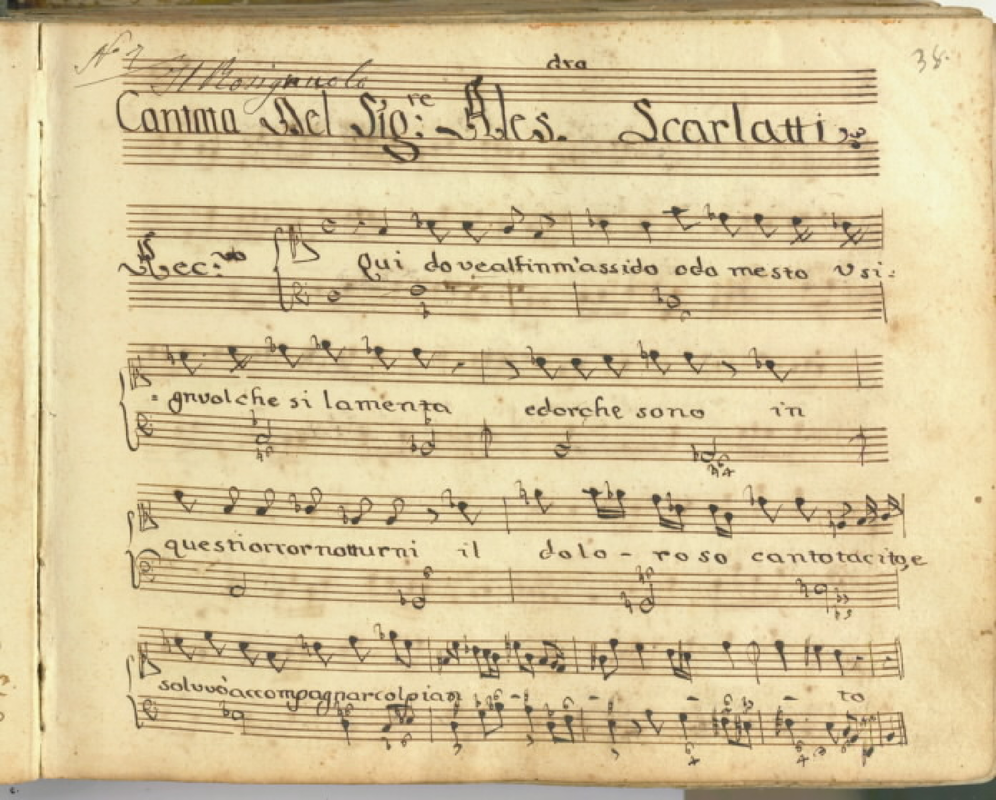 No. 38.
Il Rosignuolo dra
Cantata Del Sig:re Ales. Scarlatti
Rec:vo Qui dovealfinm'assido odo mesto Vsi:
= gnuolche si lamenta edorche sono in
questiorrornotturni il dolo - roso cantotacitoe
soluvòaccompagnarcolpian - - - - to